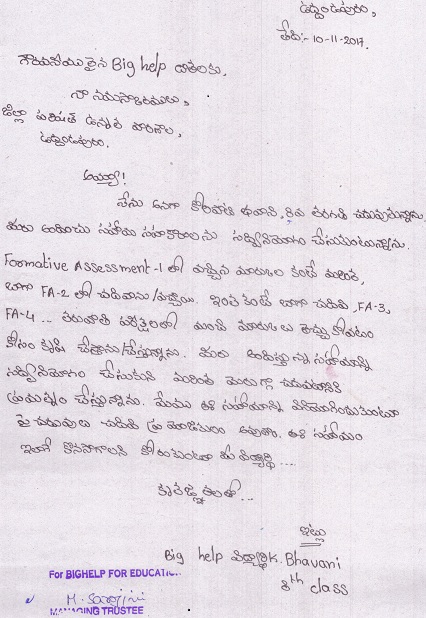 ఉద్దండపురం,
తేది:- 10-11-2017.
గౌరవనీయులైన Big help దాతలకు,
నా నమస్కారములు,
జిల్లా పరిషత్ ఉన్నత పాఠశాల,
ఉద్దండపురం.
అయ్యా!
నేను అనగా భవాని, 8వ తరగతి చదువుతున్నాను.
మీరు అందించు సహాయ సహకారాలను సద్వినియోగం చేసుకుంటున్నాను.
Formative Assessment-1 లో వచ్చిన మార్కుల కంటే మరింత
బాగా FA-2 లో చదివాను/వచ్చాయి. ఇంత కంటే బాగా చదివి, FA-3,
FA-4 ... తరువాతి పరీక్షలలో మంచి మార్కులు తెచ్చుకోవటం
కోసం కృషి చేస్తాను/చేస్తున్నాను. మీరు అందిస్తున్న సహాయాన్ని
సద్వినియోగం చేసుకుని మరింత మెరుగ్గా చదవటానికి
ప్రయత్నం చేస్తున్నాను. మేము ఈ సహాయాన్ని వినియోగించుకుంటూ
పై చదువులు చదివి ప్రయోజకులం అవుతాం. ఈ సహాయం
ఇలాగే కొనసాగాలని కోరుకుంటూ మీ విద్యార్థి ....
కృతజ్ఞతలతో...
ఇట్లు
Big help విద్యార్థిని K. Bhavani
8th class
For BIGHELP FOR EDUCATI
M. Sarojini
MANAGING TRUSTEE